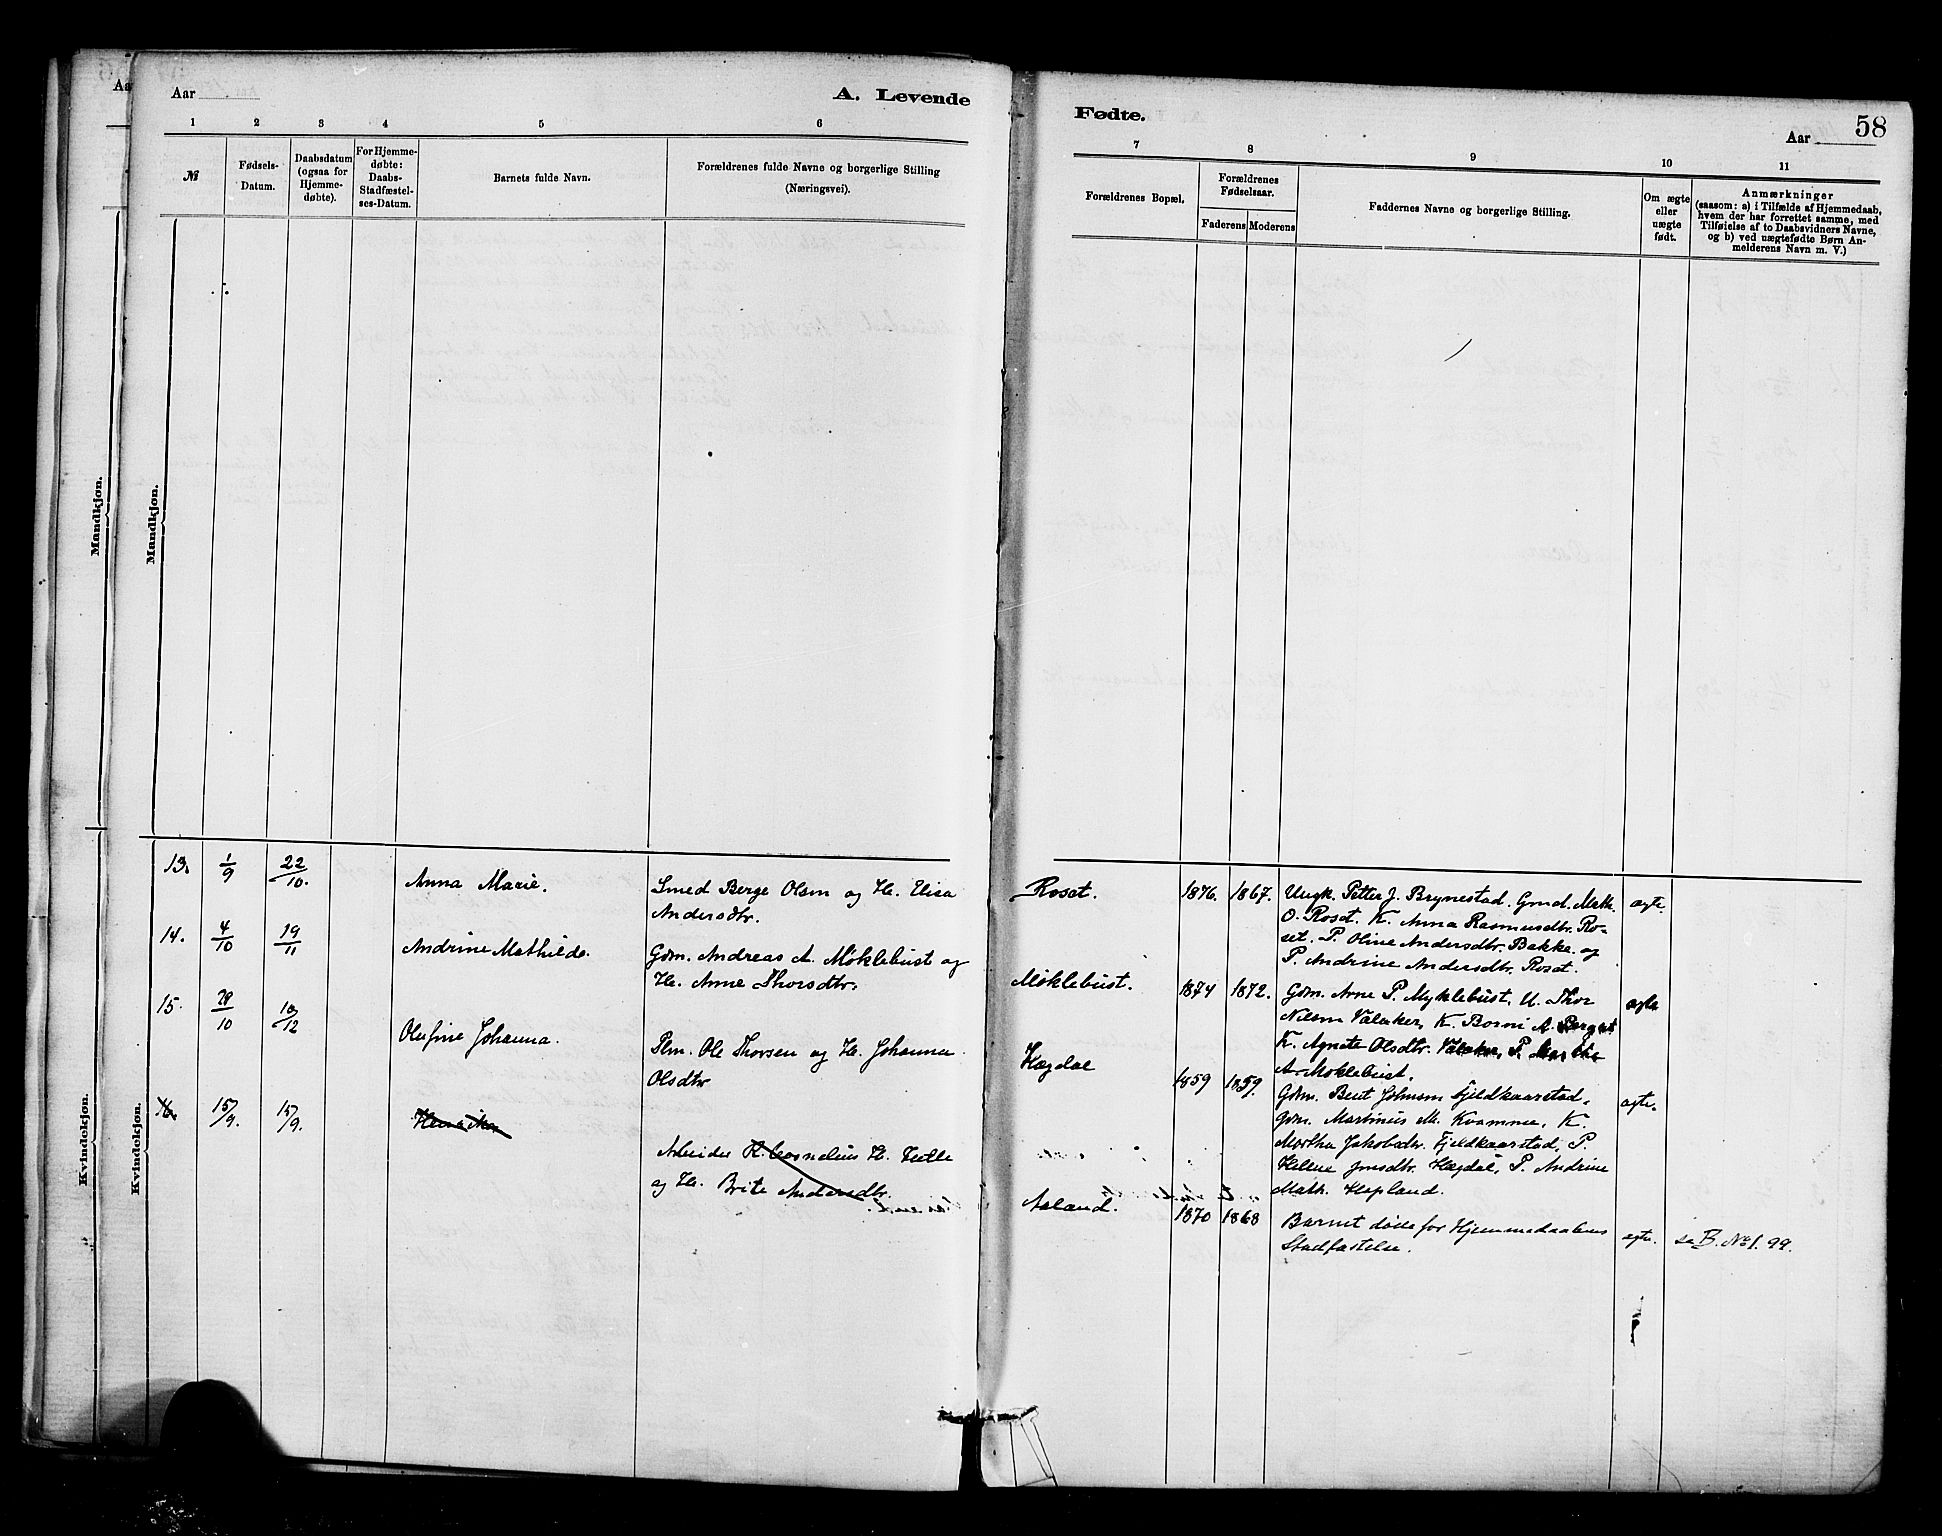 Aar
A. Levende
1 2 3 4 5 6
№
Fødsels-
Datum.
Daabsdatum
(ogsaa for
Hjemme-
døbte).
For Hjemme-
døbte:
Daabs-
Stadfæstel-
ses-Datum.
Barnets fulde Navn.
Forældrenes fulde Navne og borgerlige Stilling
(Næringsvei).
Mandkjøn.
Mandkjøn.
Kvindekjøn.
Kvindekjøn.
13. 1/9 22/10. Anna Marie.
Smed Berge Olsen og H. Elisa
Andersdtr.
14. 4/10 19/11 Andrine Mathilde.
Gdm. Andreas A. Møklebust og
H. Anne Thorsdtr.
15. 28/10 10/12 Olufine Johanna.
Plm. Ole Thorsen og H. Johanna
Olsdtr
16. 15/9. 15/9.
Arbeider K. Cornelius H.
og H. Brite Andersdtr.
Fødte.
Aar 58
7 8 9 10 11
Forældrenes Bopæl.
Forældrenes
Fødselsaar.
Faderens Moderens
Faddernes Navne og borgerlige Stilling.
Om ægte
eller
uægte
født.
Anmærkninger
(saasom: a) i Tilfælde af Hjemmedaab,
hvem der har forrettet samme, med
Tilføielse af to Daabsvidners Navne,
og b) ved uægtefødte Børn An-
melderens Navn m. V.)
Roset. 1876. 1867. Ungk. Petter J. Brynestad. Gmd. Math. ægte.
O. Roset. K. Anna Rasmusdtr. Ro-
set. P. Oline Andersdtr. Bakke. og
P. Andrine Andersdtr. Roset.
Møklebust. 1874 1872. Gdm. Arne P. Myklebust, U. Thor ægte
Nilsen Valaker, K. Borni A. Berget
K. Agnete Olsdtr. Valaker, P. Marthe
A. Møklebust.
Hægdal 1859 1859. Gdm. Bent Johnsen Fjeldkaarstad, ægte.
Gdm. Martinus M. Kvammen, K.
Martha Jakobsdtr. Fjeldkaarstad, P.
Helene Jonsdtr. Hægdal, P. Andrine
Math. Hopland.
Aaland. 1870 1868 Barnet døde før Hjemmedaabens ægte. se B. No 1. 99.
Stadfæstelse.